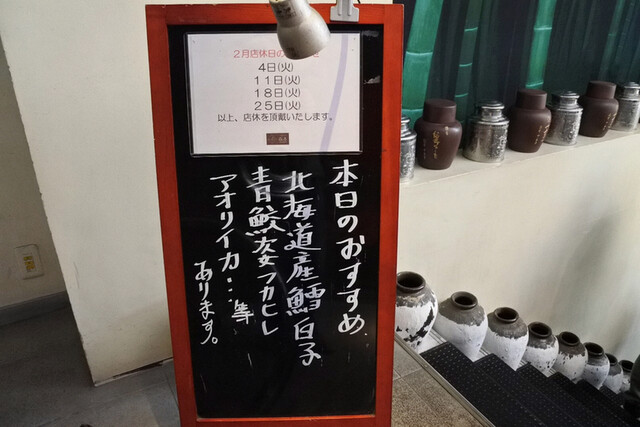 ２月店休日の
４日(火)
１１日(火)
１８日(火)
２５日(火)
以上、店休を頂戴いたします。
本日のおすすめ
北海道産鱈白子
青鮫姿フカヒレ
アオリイカ…等
あります。